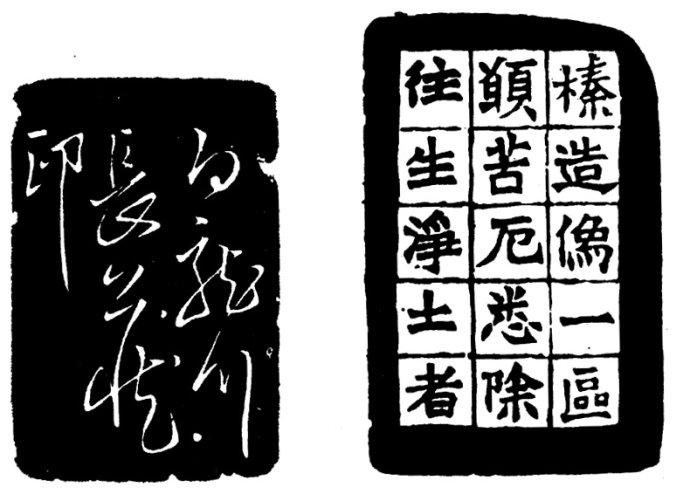 榛造像一區
願苦厄悉除
往生淨土者
白龍川
長
印